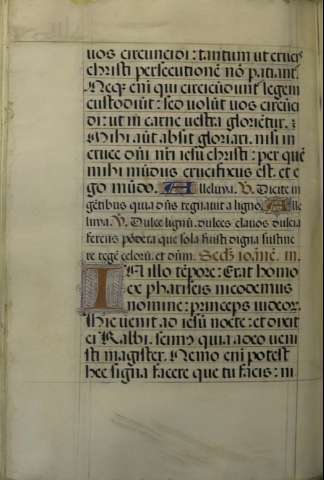 uos circuncidi: tantum ut crucis
christi persecutionē nō patiant̄.
Neq; em̄ qui circūcidunt̄ legem
custodiūt: sed volūt uos circūci
di: ut in carne uestra glorient̄ur.
Mihi aūt absit gloriari. nisi in
cruce dn̄i nr̄i iesu christi: per quē
mihi mūdus crucifixus est. et e
go mūdo. Alleluya. V. Dicite in
gētibus quia dn̄s regnauit a ligno. Alle
luya. V. Dulce lignū. dulces clauos dulcia
ferens pōdera que sola fuisti digna sustine
re regē celorū. et dn̄m. Secd̄; io.inē. iii.
In illo tēpore: Erat homo
ex phariseis nicodemus
nomine: princeps iudeor̄.
Hic uenit ad iesū nocte: et dixit
ei Rabbi. scim9 quia a deo ueni
sti magister. Nemo em̄ potest
hec signa facere que tu facis: ni